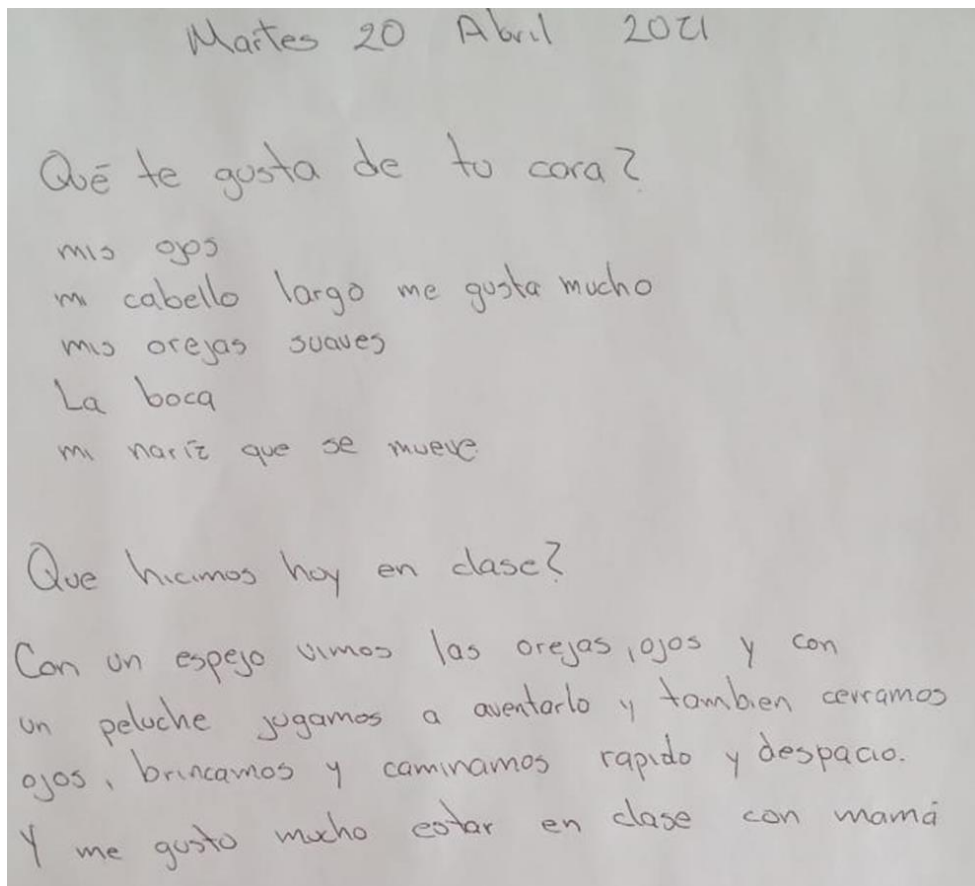 Martes 20 Abril 2021
Qué te gusta de tu cara?
mis ojos
mi cabello largo me gusta mucho
mis orejas suaves
La boca
mi naríz que se mueve
Que hicimos hoy en clase?
Con un espejo vimos las orejas, ojos y con
un peluche jugamos a aventarlo y tambien cerramos
ojos, brincamos y caminamos rapido y despacio.
Y me gusto mucho estar en clase con mamá